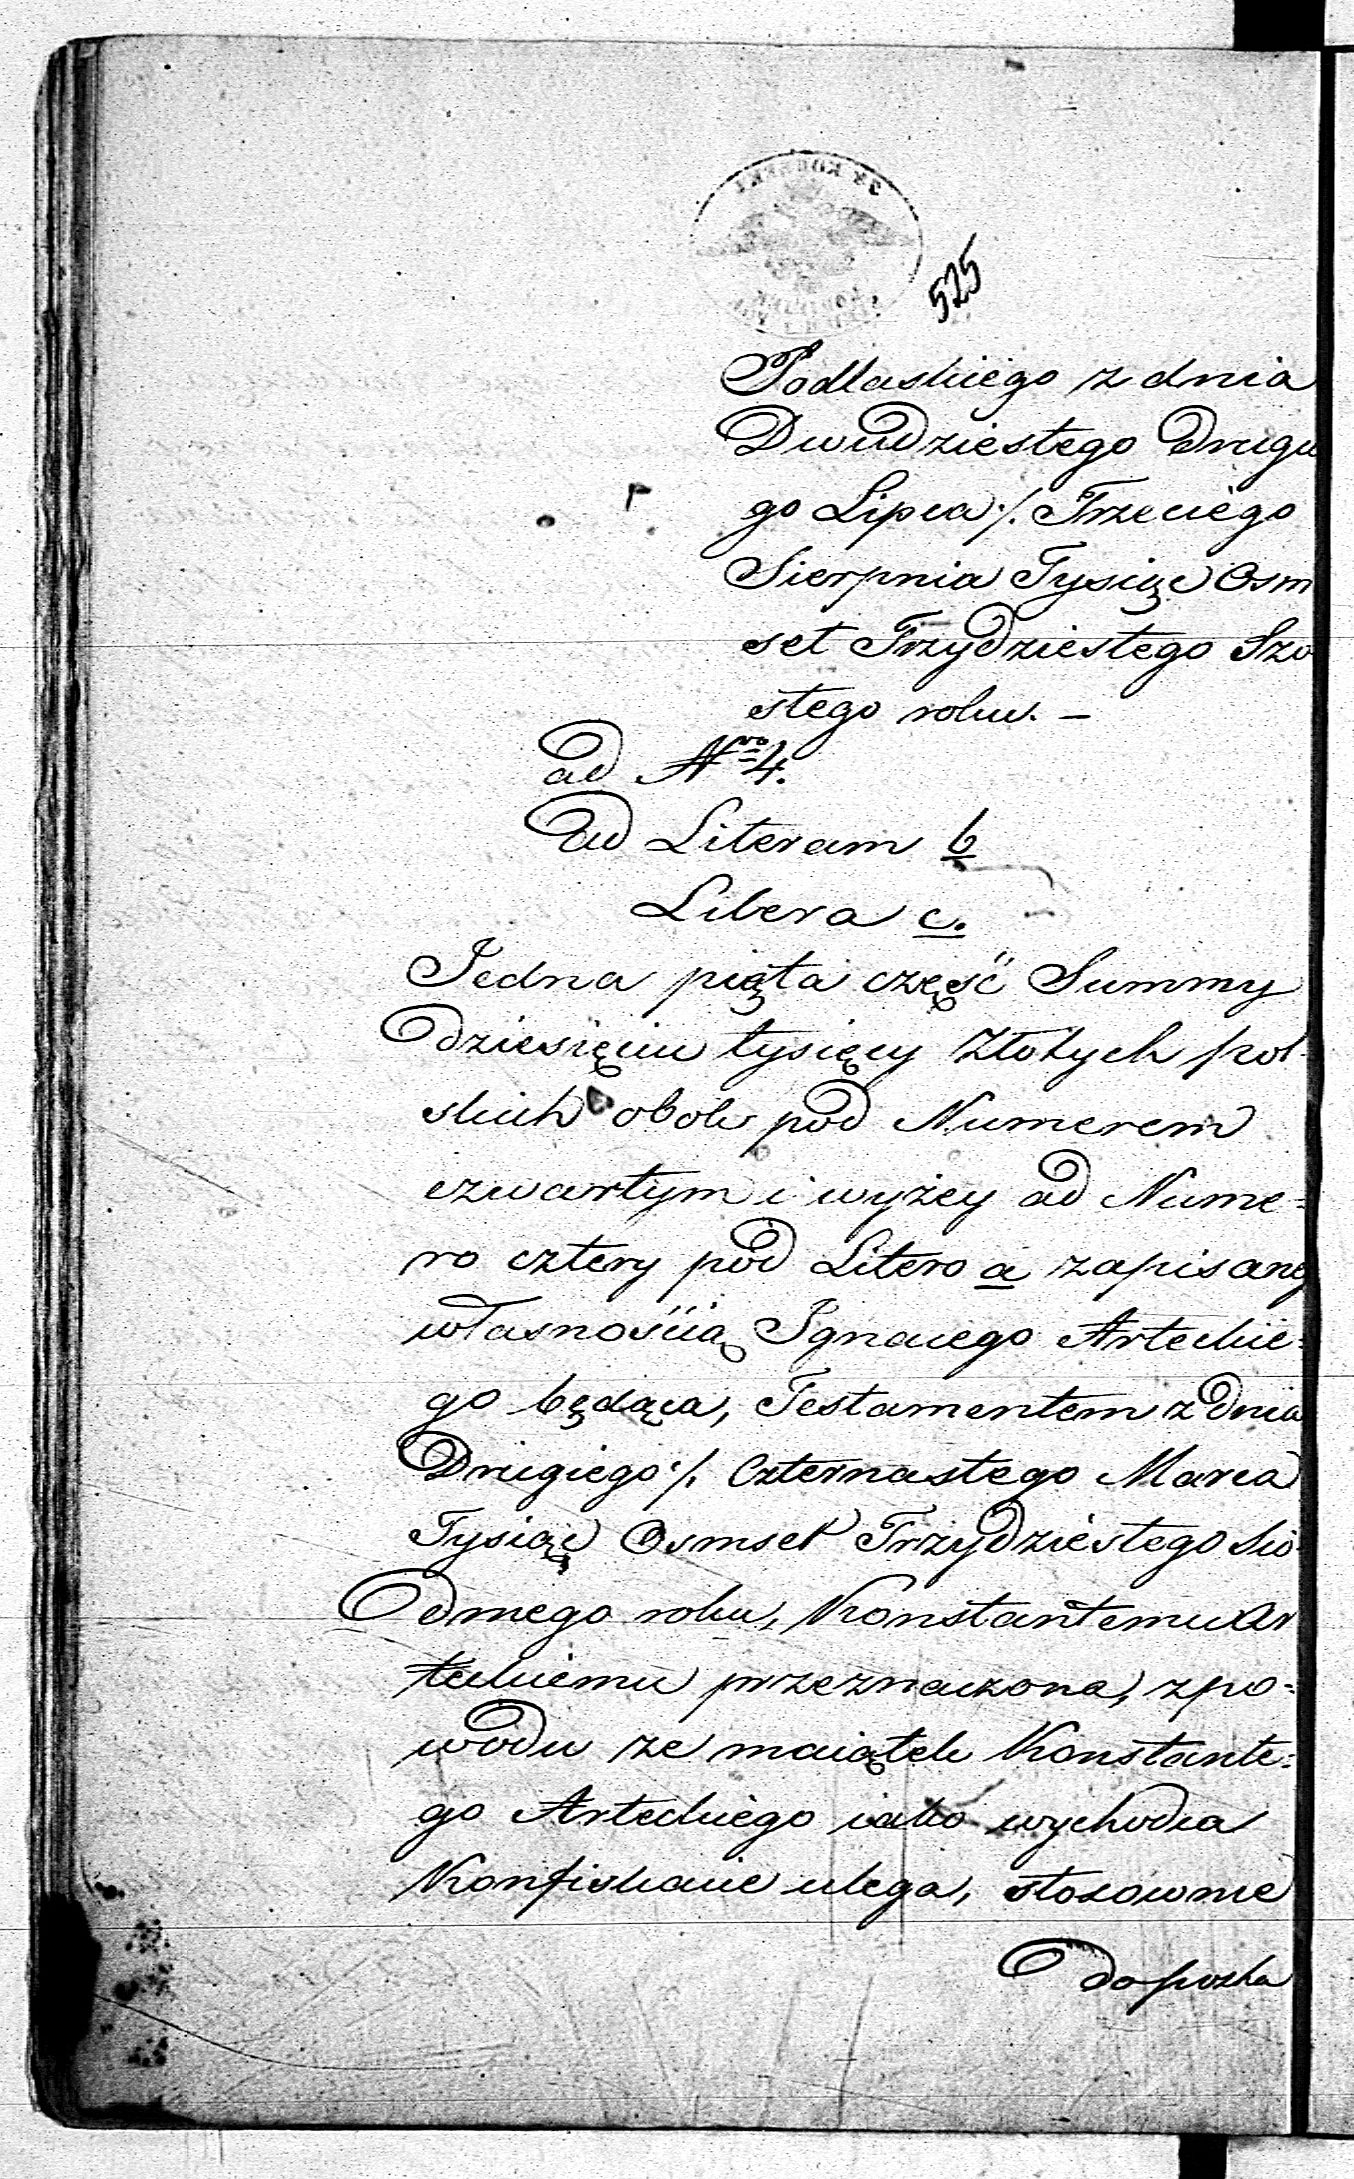 525
Podlaskiego z dnia
Dwudziestego Drugie
go Lipca ./. Trzeciego
Sierpnia Tysiąc Osm
set Trzydziestego Szó
stego roku. –
ad Nro 4.
Ad Literam b
Libera c.
Jedna piąta część Summy
dziesięciu tysięcy Złotych pol-
skich obok pod Numerem
czwartym i wyżey ad Nume=
ro cztery pod Litero a zapisaney
własnością Ignacego Arteckie=
go będąca, Testamentem z Dnia
Drugiego ./. Czternastego Marca
Tysiąc Osmset Trzydziestego Sió-
dmego roku, Konstantemu Ar
teckiemu przeznaczona, z po=
wodu ze maiątek Konstante=
go Arteckiego iako wychodca
Konfiskacie ulega, stosownie
do poszu